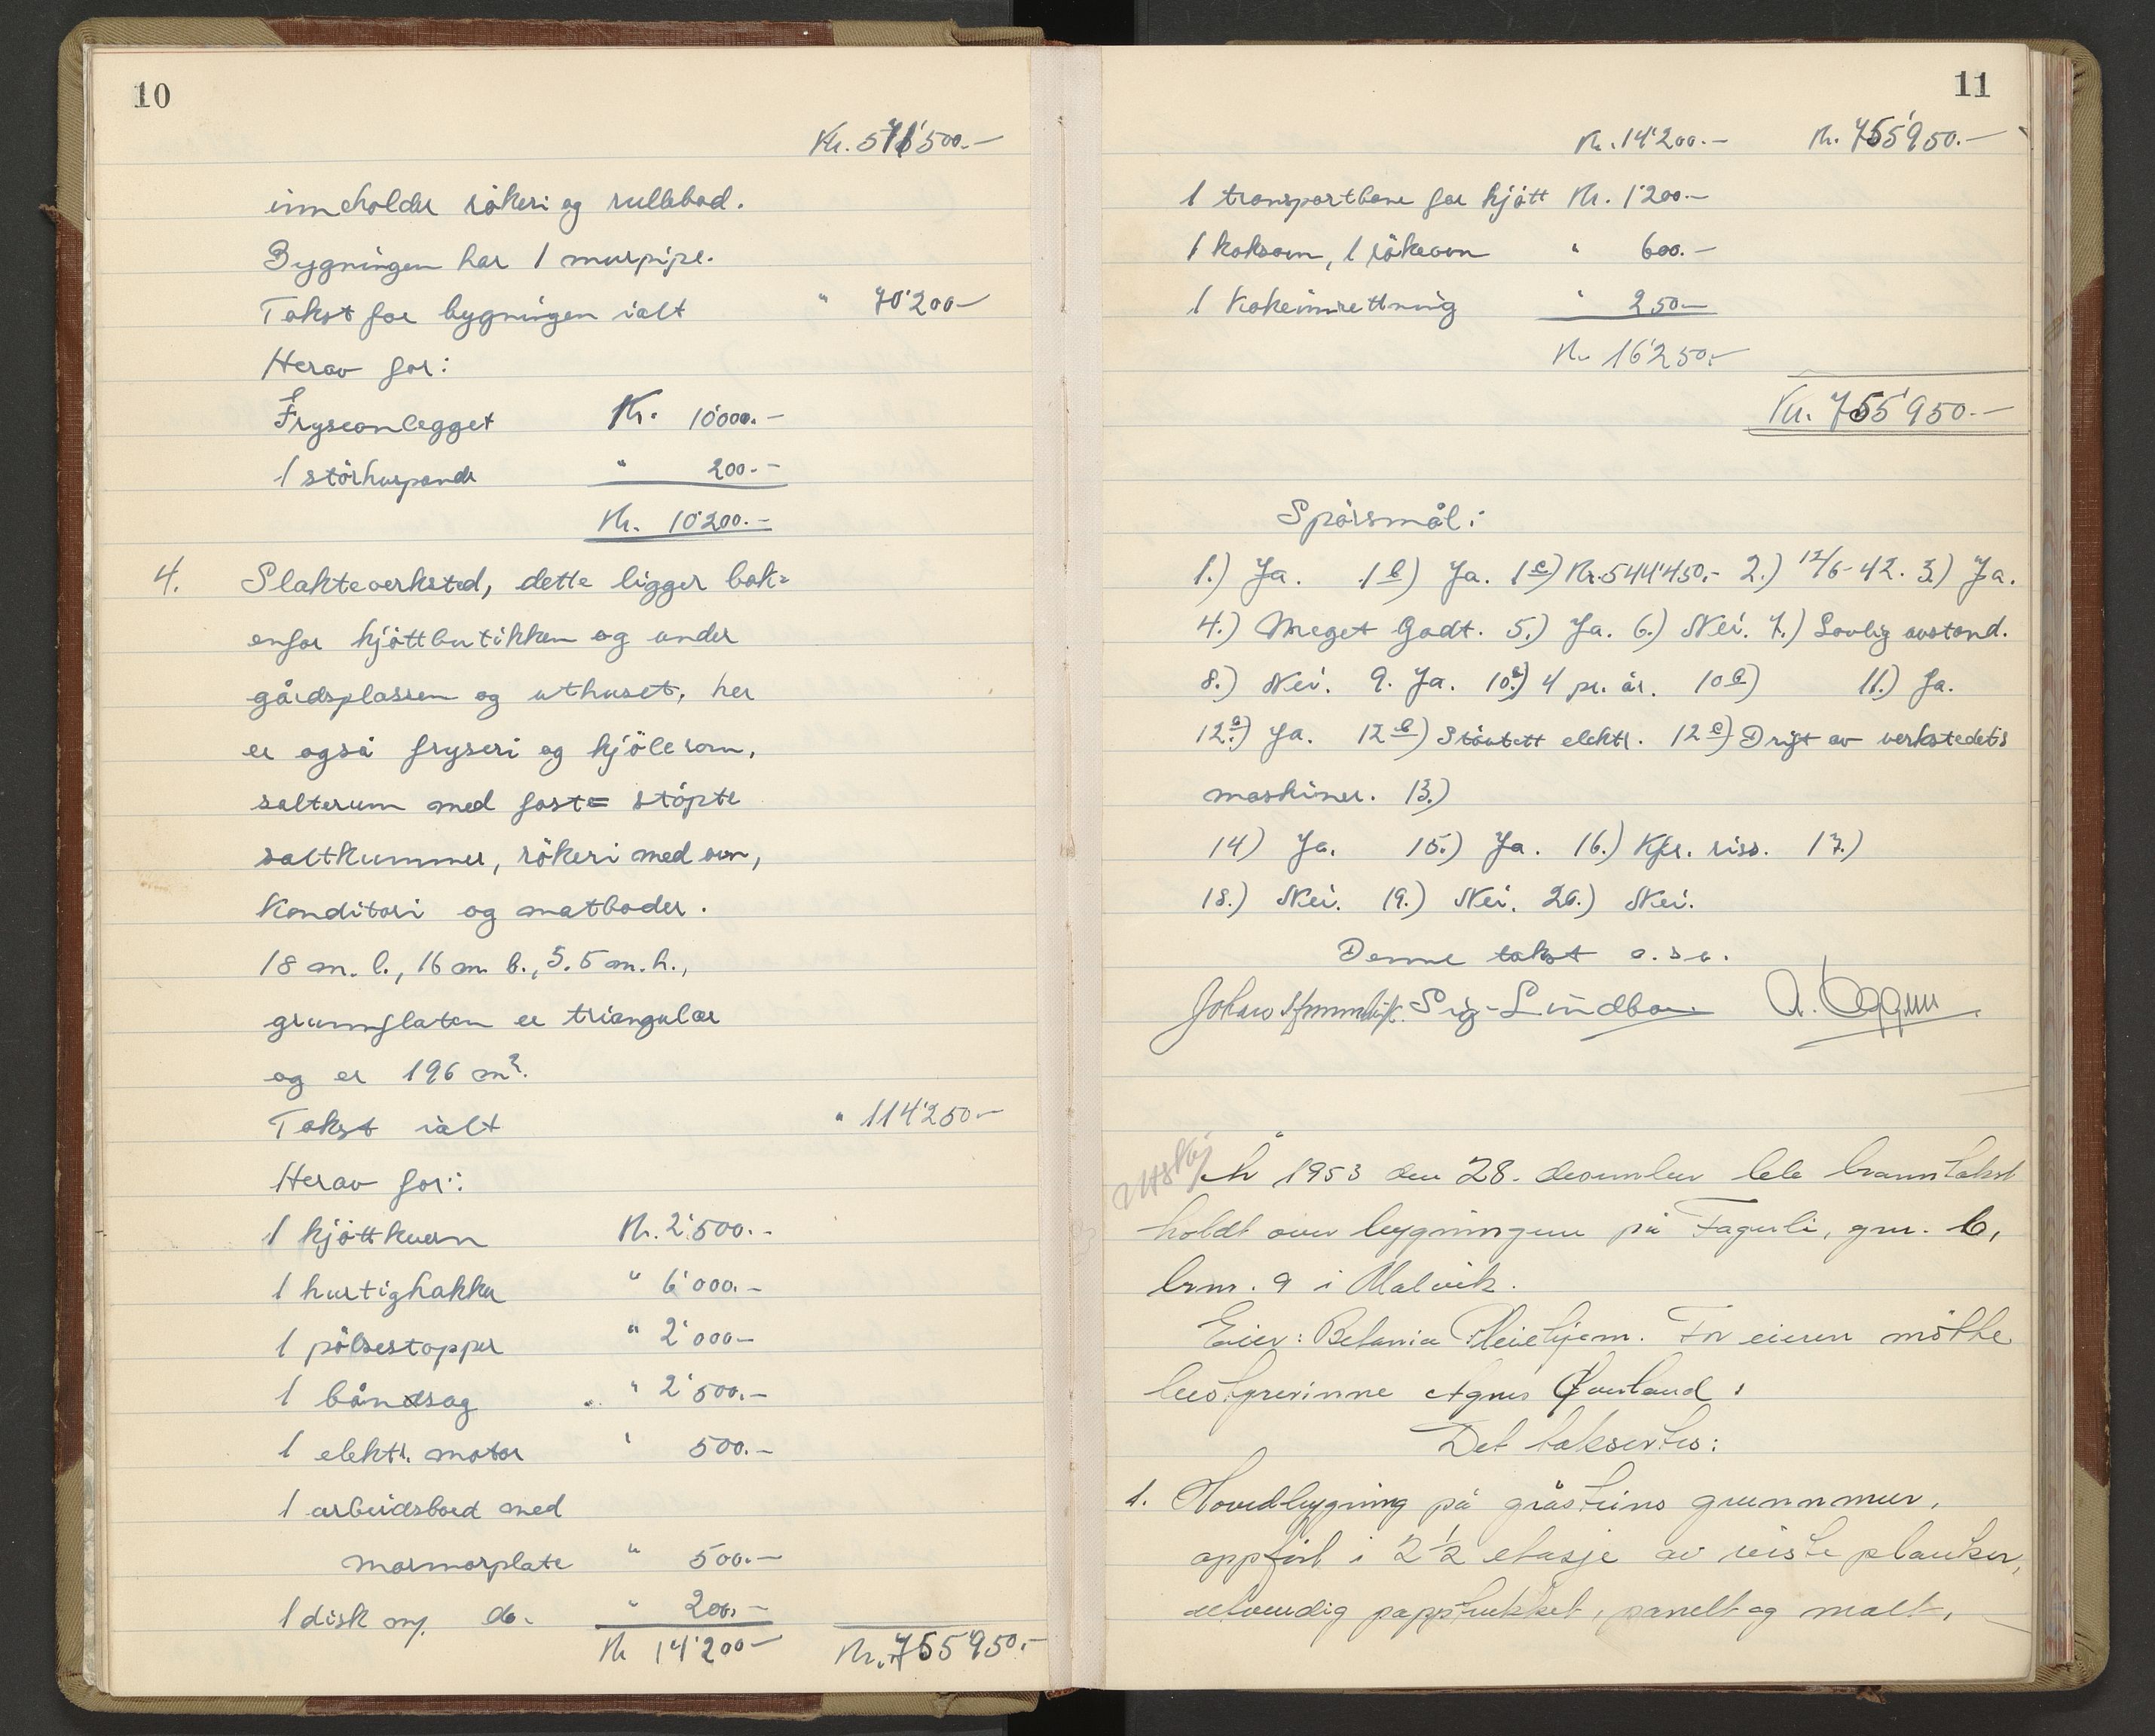 10
Kr. 571'500.—
inneholder rökeri og rullebod.
Bygningen har 1 murpipe.
Takst for bygningen ialt " 70'200—
Herav for:
Fryseanlegget Kr. 10'000.—
1 störhuspande " 200.—
Kr. 10'200.—
4. Slakteverksted, dette ligger bak=
enfor kjöttbutikken og under
gårdsplassen og uthuset, her
er også fryseri og kjölerom,
salterum med faste stöpte
saltkummer, rökeri med ovn,
Konditori og matboder.
18 m. l., 16 m. b., 3.5 m. h.,
grunnflaten er triangulær
og er 196 m².
Takst ialt " 114'250—
Herav for:
1 kjöttkvern Kr. 2'500.-
1 hurtighakker " 6'000.—
1 pölsestopper " 2'000—
1 båndsag " 2'500.—
1 elektr. motor " 500.—
1 arbeidsbord med
marmorplate " 500.—
1 disk m/ do. " 200.—
Kr 14'200— Kr. 755'950.-
11
Kr. 14'200.— Kr. 755'950.—
1 transportbane for kjött Kr. 1'200.—
1 koksovn, 1 rökeovn " 600.—
1 Kokeinnrettning " 250—
Kr. 16'250.-
Kr. 755'950.—
Spörsmål:
1.) Ja. 1 b) Ja. 1 c) Kr. 544'450.- 2.) 12/6-42. 3.) Ja.
4.) Meget Godt. 5.) Ja. 6.) Nei. 7.) Lovlig avstand.
8.) Nei. 9. Ja. 10.) 4 pr. år. 10 a) 11.) Ja.
12 a.) Ja. 12 b) Stövtett elektr. 12 c) Drift av verkstedets
maskiner. 13.)
14) Ja. 15.) Ja. 16.) Kfr. riss. 17.)
18.) Nei. 19.) Nei. 20.) Nei.
Denne takst o. s. v.
Johan Sig. Lindbo A.
Utskr.
År 1953 den 28. desember ble branntakst
holdt over bygningene på Fagerli, gnr. 6,
brnr. 9 i Malvik.
Eier: Betania Pleiehjem. For eieren mötte
bestyrerinne Agnes Överland.
Det taksertes:
1. Hovedbygning på gråsteins grunnmur,
oppfört i 2½ etasje av reiste planker,
utvendig papptrukket, panelt og malt,